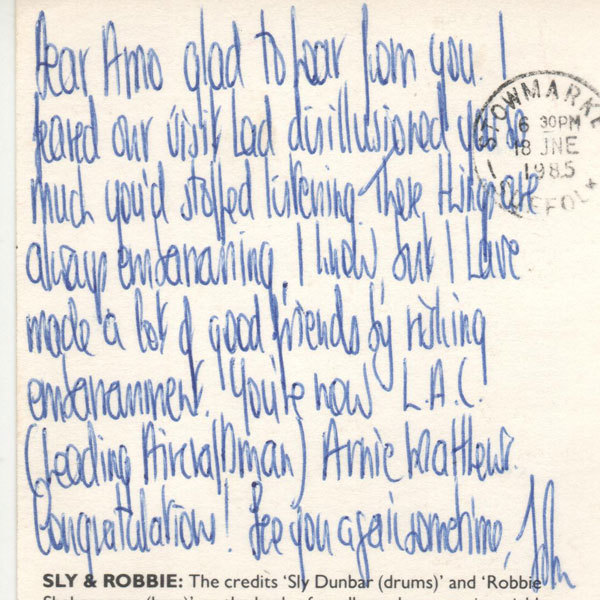 Dear Arno glad to hear from you. I
feared our visit had disillusioned you so
much you'd stopped listening These things are
always embarrassing, I know, but I have
made a lot of good friends by risking
embarrassment. You're now L.A.C.
(Leading Aircraftman) Arnie Matthews.
Congratulations! See you again sometime, John
STOWMARKE
6 30PM
18 JNE
1985
SUFFOLK
SLY & ROBBIE: The credits 'Sly Dunbar (drums)' and 'Robbie